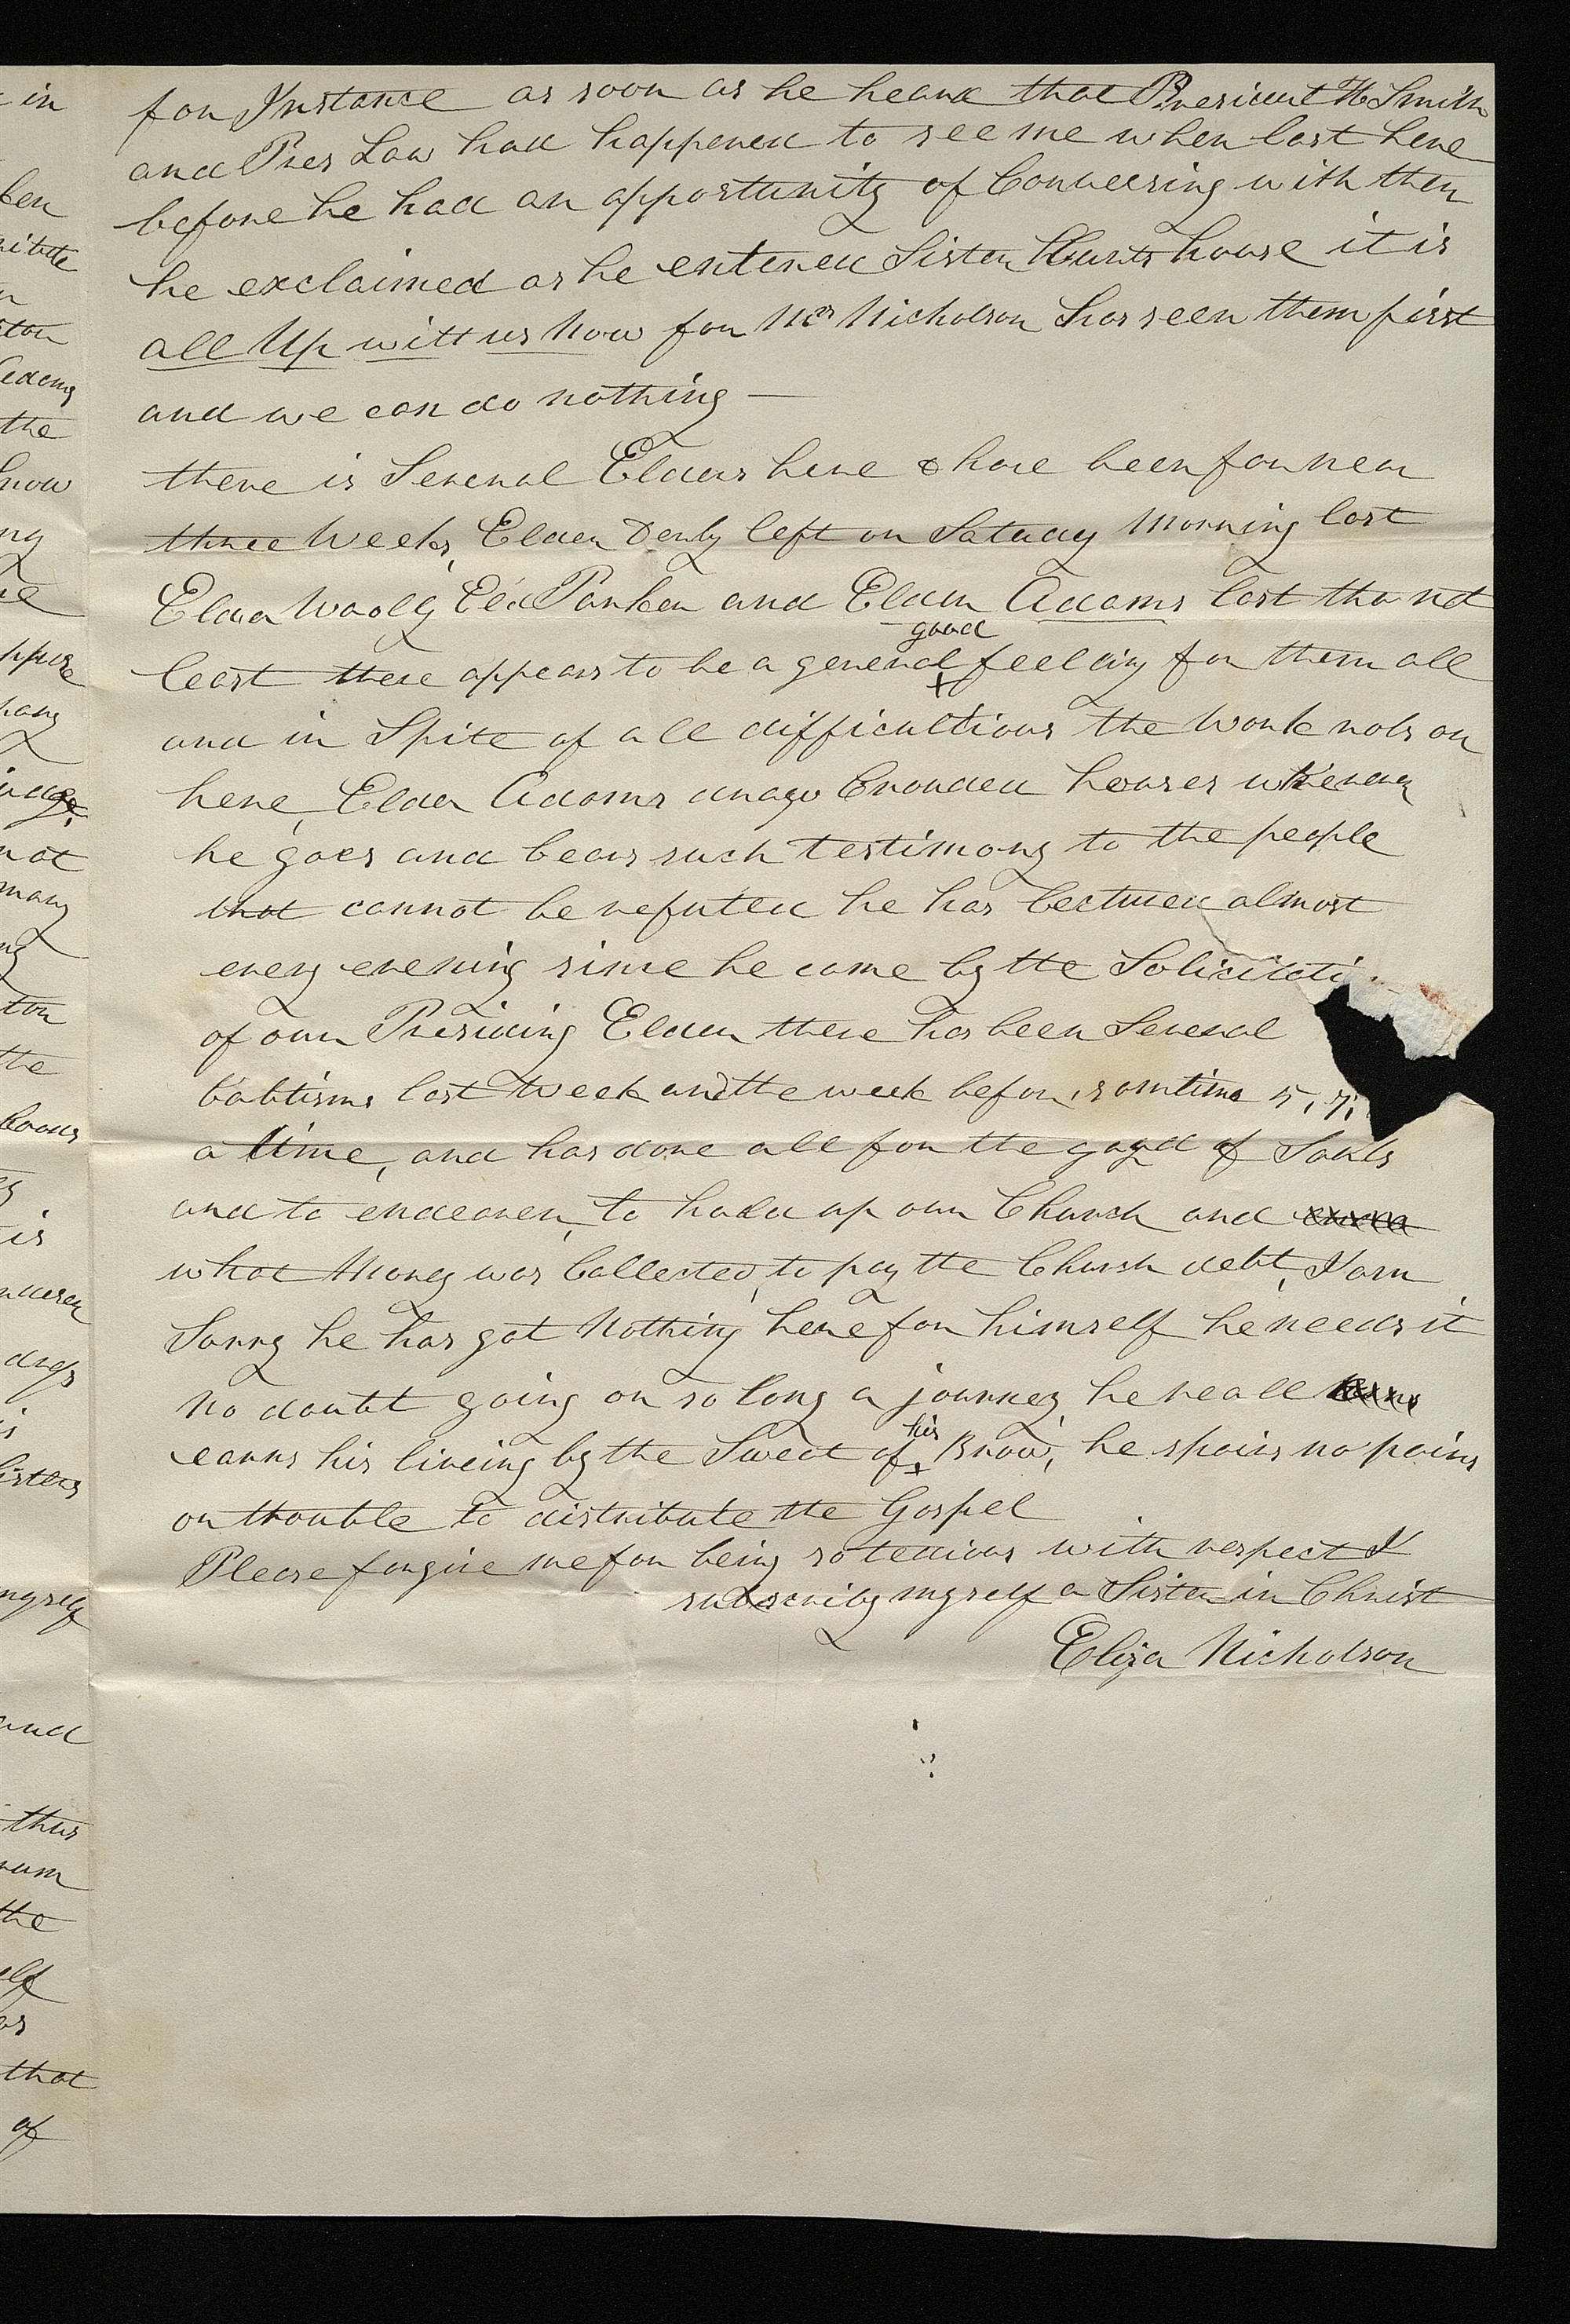 for Instance as soon as he heard that President H Smith
and Pres Law had happened to see me when last here
before he had an opportunity of Conversing with them
he exclaimed as he entered Sister Hunts house it is
all Up witt us Now for Mrs Nicholson has seen them first
and we can do nothing —
there is Several Elders here & have been for near
three Weeks, Elder Derby left on Satuday Morning last
Elder Wooly Eld Parker and Elder Adams last tho not
least there appears to be a general good feeling for them all
and in Spite of all difficultious the Work rols on
here, Elder Adams draws Crouded houses whenever
he goes and bears such testimony to the people
that cannot be refuted he has lectured almost
every evening since he came by the Solicitati
of our Presiding Elder there has been Several
babtisms last Week and the week before, somtime 5, 7,
a time, and has done all for the good of Souls
and to endeaver, to build up our Church and
what Money was Collected, to pay the Church debt, I am
Sorry he has got Nothing here for himself he needs it
no doubt going on so long a journey, he reall
earns his liveing by the Sweat of his Brow, he spairs no pains
or trouble to distribute the Gospel
Please forgive me for being so tedious with respect I
subscribe myself a Sister in Christ
Eliza Nicholson
in
ken
the
know
not
many
ton
the
is
drops
sisters
myself
and
thus
the
that
of